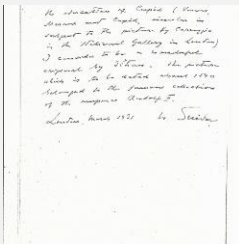 the education of Cupid (Venus,
Mercury and Cupid, similar in
subject to the picture by Correggio
in the National Gallery in London)
I consider to be a
original by Titian. The picture
which is to be dated about 15
belonged to the famous collection
of the emperor Rudolf II.
London, March 1931